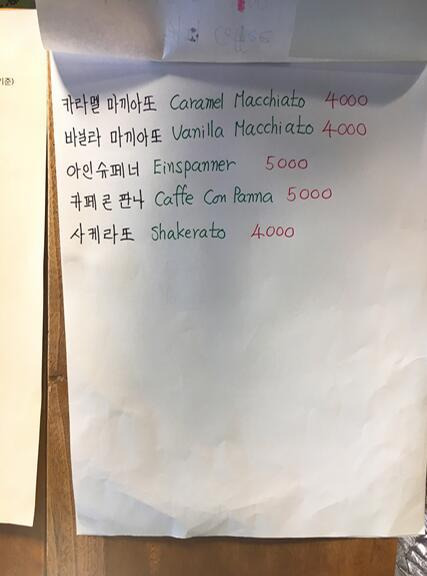 기준)
Coffee
카라멜 마끼아또 Caramel Macchiato 4000
바닐라 마끼아또 Vanilla Macchiato 4000
아인슈페너 Einspanner 5000
카페 콘 판나 Caffe Con Panna 5000
샤케라또 Shakerato 4000